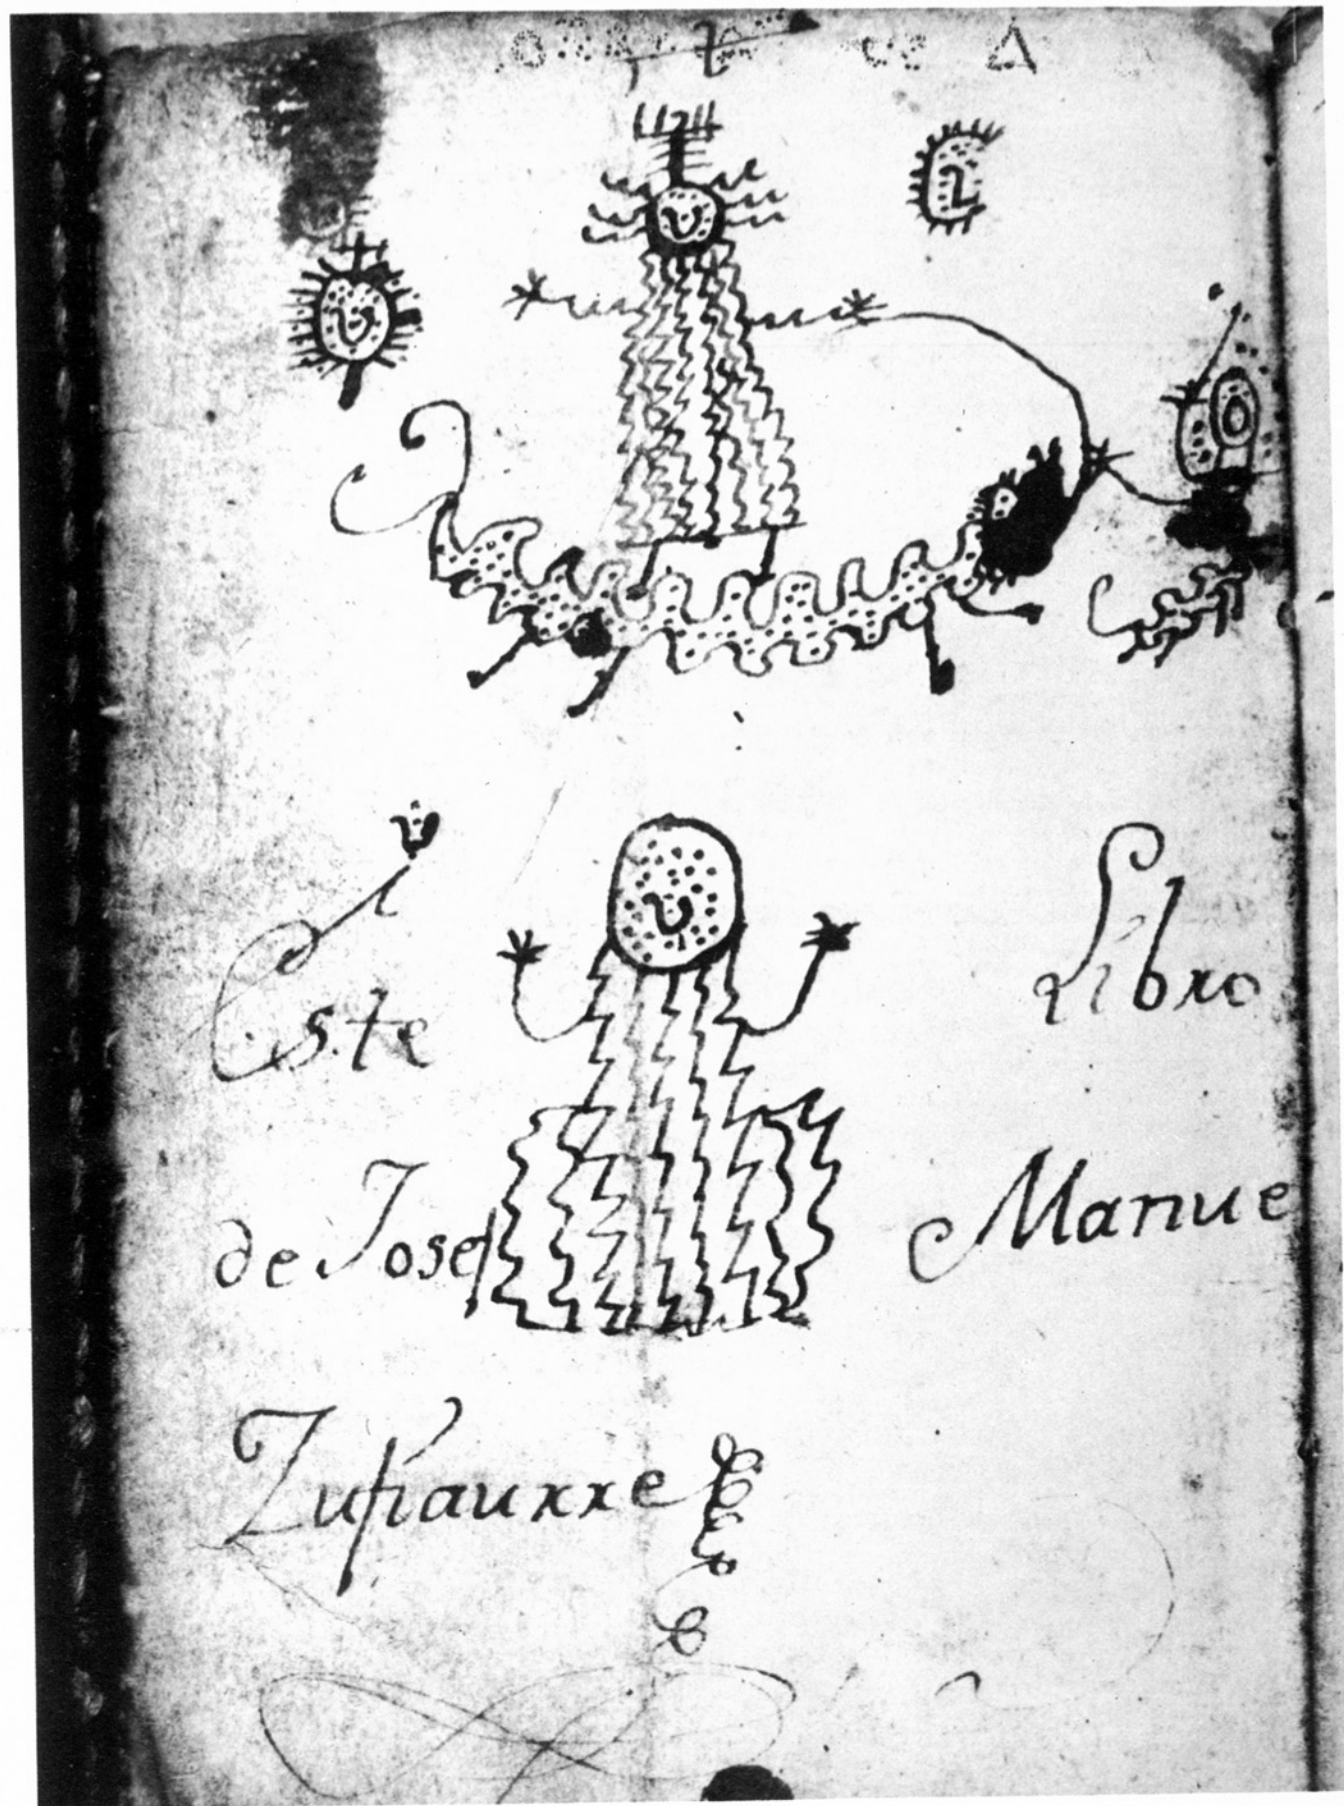 Este Libro
de Josef Manue
Zufiaurre